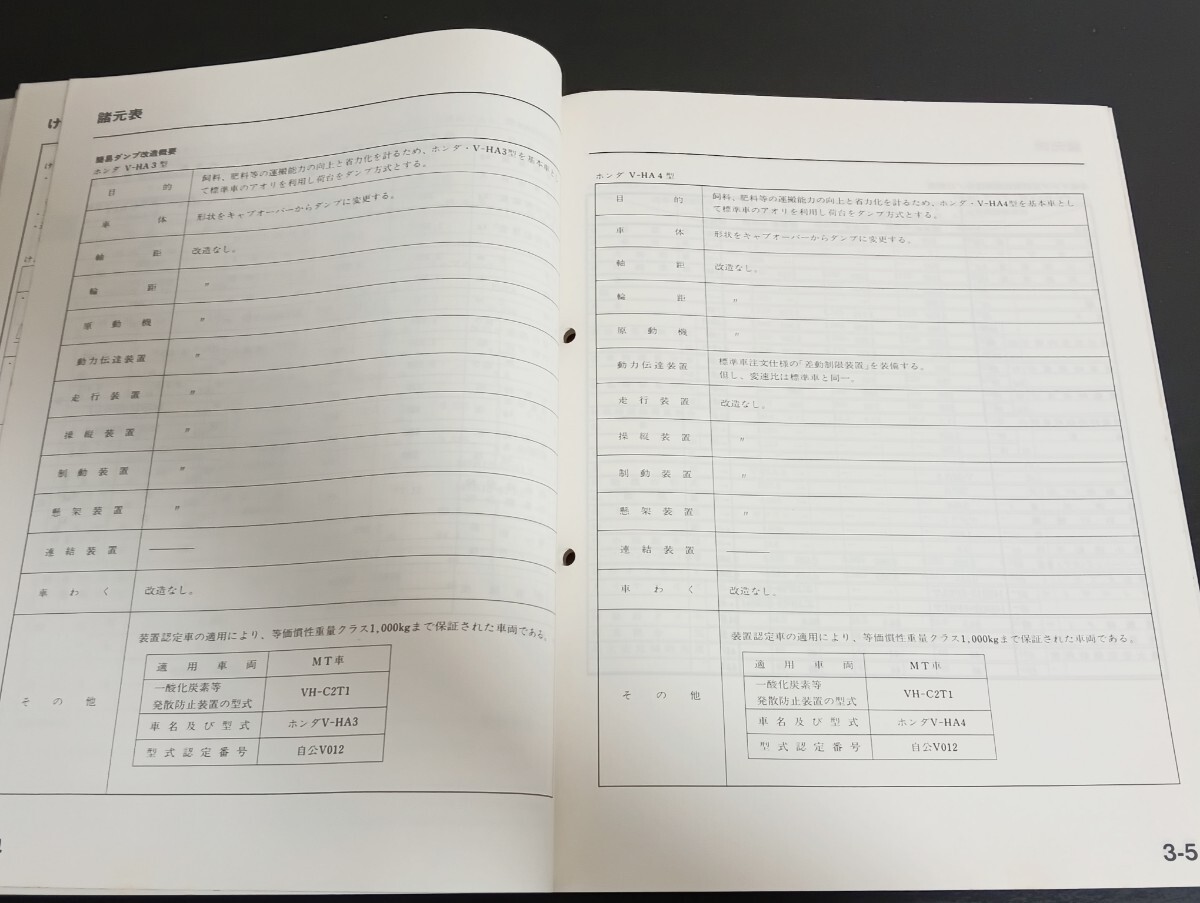 諸元表
簡易ダンプ改造概要
ホンダ V-HA3型
目 的 飼料、肥料等の運搬能力の向上と省力化を計るため、ホンダ・V-HA3型を基本車とし
て標準車のアオリを利用し荷台をダンプ方式とする。
車 体 形状をキャブオーバーからダンプに変更する。
軸 距 改造なし。
輪 距 〃
原 動 機 〃
動力伝達装置 〃
走 行 装 置 〃
操 縦 装 置 〃
制 動 装 置 〃
懸 架 装 置 〃
連 結 装 置 ———
車 わ く 改造なし。
そ の 他
装置認定車の適用により、等価慣性重量クラス1,000kgまで保証された車両である。
適 用 車 両 MT車
一酸化炭素等
発散防止装置の型式 VH-C2T1
車 名 及 び 型 式 ホンダV-HA3
型 式 認 定 番 号 自公V012
ホンダ V-HA4型
目 的 飼料、肥料等の運搬能力の向上と省力化を計るため、ホンダ・V-HA4型を基本車とし
て標準車のアオリを利用し荷台をダンプ方式とする。
車 体 形状をキャブオーバーからダンプに変更する。
軸 距 改造なし。
輪 距 〃
原 動 機 〃
動力伝達装置 標準車注文仕様の「差動制限装置」を装備する。
但し、変速比は標準車と同一。
走 行 装 置 改造なし。
操 縦 装 置 〃
制 動 装 置 〃
懸 架 装 置 〃
連 結 装 置 ———
車 わ く 改造なし。
そ の 他
装置認定車の適用により、等価慣性重量クラス1,000kgまで保証された車両である。
適 用 車 両 MT車
一酸化炭素等
発散防止装置の型式 VH-C2T1
車 名 及 び 型 式 ホンダV-HA4
型 式 認 定 番 号 自公V012
3-5